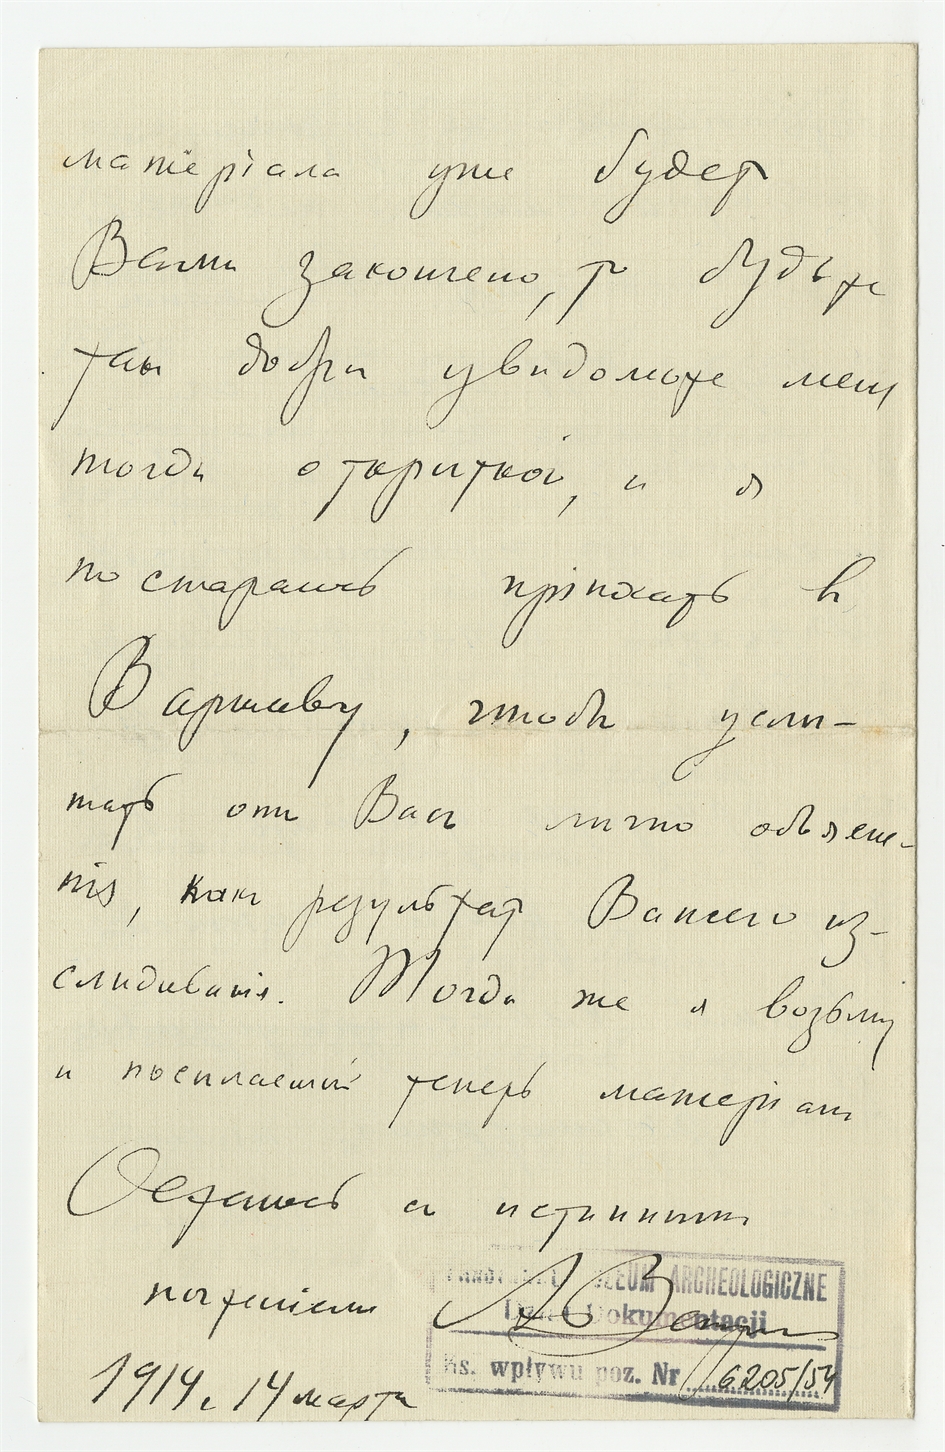 матеріала уже будет
Вами закончено, то будьте
так добры увѣдомьте меня
тогда открыткой, и я
постараюсь пріѣхать въ
Варшаву, чтобы услы-
шать отъ Васъ лично объясне-
нія, какъ результат Вашего из-
слѣдованія. Тогда же я возьму
и посылаемый теперь матеріалъ
Остаюсь съ истиннымъ
почтеніемъ
1914 г. 14 марта
PAŃSTWOWE MUZEUM ARCHEOLOGICZNE
Dział Dokumentacji
Ks. wpływu poz. Nr 6205/54